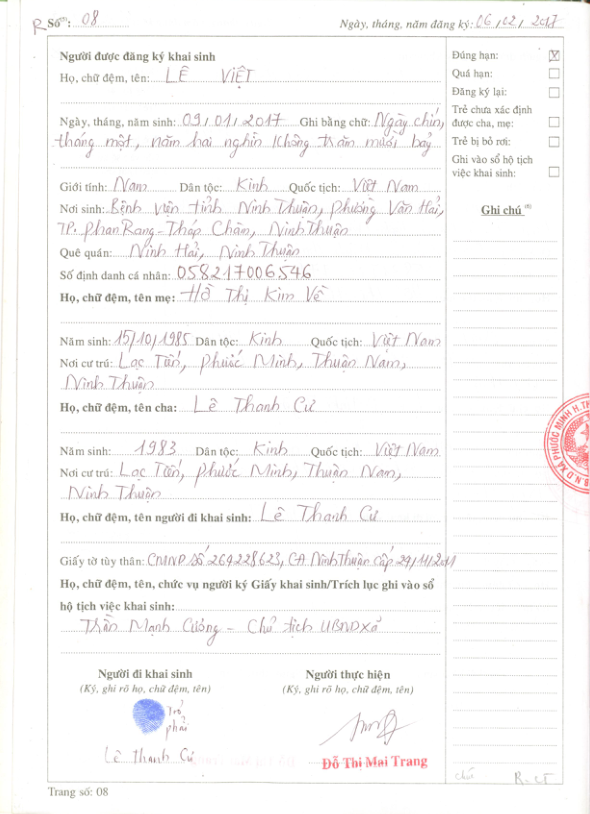 R Số⁽⁵⁾: 08 Ngày, tháng, năm đăng ký: 06/02/2017
Người được đăng ký khai sinh
Họ, chữ đệm, tên: LÊ VIỆT
Ngày, tháng, năm sinh: 09/01/2017 Ghi bằng chữ: Ngày chín,
tháng một, năm hai nghìn không trăm mười bảy
Giới tính: Nam Dân tộc: Kinh Quốc tịch: Việt Nam
Nơi sinh: Bệnh viện tỉnh Ninh Thuận, phường Văn Hải,
TP. Phan Rang-Tháp Chàm, Ninh Thuận
Quê quán: Ninh Hải, Ninh Thuận
Số định danh cá nhân: 058217006546
Họ, chữ đệm, tên mẹ: Hồ Thị Kim Vệ
Năm sinh: 15/10/1985 Dân tộc: Kinh Quốc tịch: Việt Nam
Nơi cư trú: Lạc Tiến, Phước Minh, Thuận Nam,
Ninh Thuận
Họ, chữ đệm, tên cha: Lê Thanh Cư
Năm sinh: 1983 Dân tộc: Kinh Quốc tịch: Việt Nam
Nơi cư trú: Lạc Tiến, Phước Minh, Thuận Nam,
Ninh Thuận
Họ, chữ đệm, tên người đi khai sinh: Lê Thanh Cư
Giấy tờ tùy thân: CMND số 264228623, CA Ninh Thuận cấp 29/11/2011
Họ, chữ đệm, tên, chức vụ người ký Giấy khai sinh/Trích lục ghi vào sổ
hộ tịch việc khai sinh:
Trần Mạnh Cường - Chủ tịch UBND xã
Người đi khai sinh Người thực hiện
(Ký, ghi rõ họ, chữ đệm, tên) (Ký, ghi rõ họ, chữ đệm, tên)
Trỏ
phải
Lê Thanh Cư Đỗ Thị Mai Trang
Trang số: 08
Đúng hạn: V
Quá hạn:
Đăng ký lại:
Trẻ chưa xác định
được cha, mẹ:
Trẻ bị bỏ rơi:
Ghi vào sổ hộ tịch
việc khai sinh:
Ghi chú ⁽⁶⁾
U.B.N.D XÃ PHƯỚC MINH H.TH
R. CT